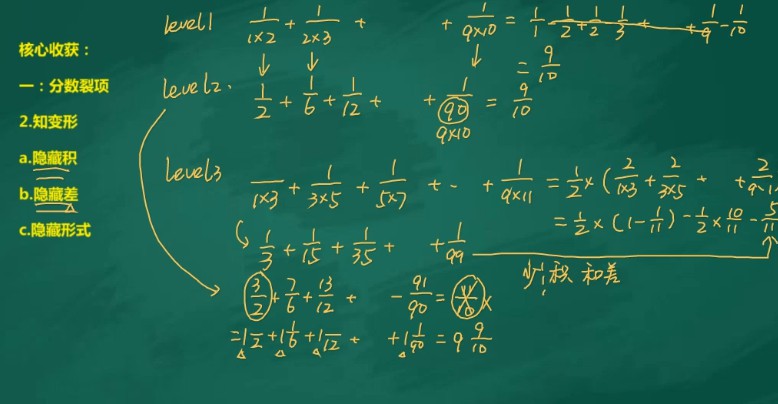 核心收获：
一：分数裂项
2.知变形
a.隐藏积
b.隐藏差
c.隐藏形式
level1 1/1×2 + 1/2×3 + + 1/9×10 = 1/1 - 1/2 + 1/2 - 1/3 + + 1/9 - 1/10
= 9/10
level2. 1/2 + 1/6 + 1/12 + + 1/90 = 9/10
9×10
level3 1/1×3 + 1/3×5 + 1/5×7 + + 1/9×11 = 1/2 × ( 2/1×3 + 2/3×5 + + 2/9×1
= 1/2 × (1 - 1/11) - 1/2 × 10/11 - 5/11
1/3 + 1/15 + 1/35 + + 1/99
积 和差
3/2 + 7/6 + 13/12 + - 91/90 = ×
= 1 1/2 + 1 1/6 + 1 1/12 + + 1 1/90 = 9 9/10